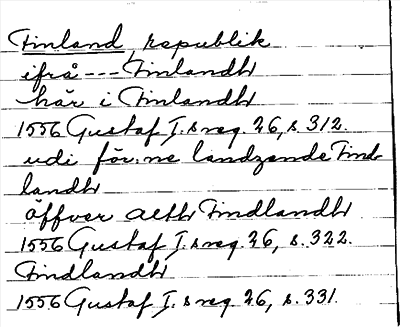 Finland, republik
ifrå --- Finlandh
här i Finlandh
1556 Gustaf I:s reg. 26, s. 312.
udi för:ne landzende Find-
landh
öffver alth Findlandh
1556 Gustaf I:s reg. 26, s. 322.
Findlandh
1556 Gustaf I:s reg. 26, s. 331.